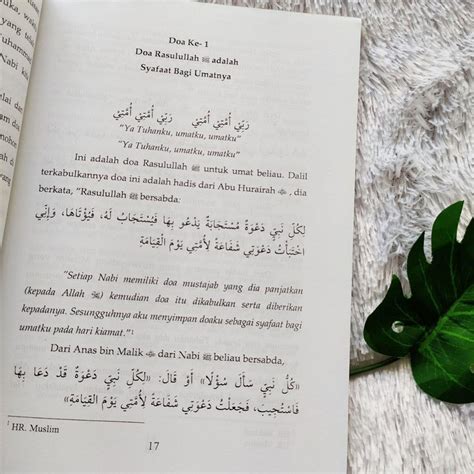 Doa Ke- 1
Doa Rasulullah ﷺ adalah
Syafaat Bagi Umatnya
رَبِّي أُمَّتِي أُمَّتِي رَبِّي أُمَّتِي أُمَّتِي
"Ya Tuhanku, umatku, umatku"
"Ya Tuhanku, umatku, umatku"
Ini adalah doa Rasulullah ﷺ untuk umat beliau. Dalil
terkabulkannya doa ini adalah hadis dari Abu Hurairah , dia
berkata, "Rasulullah ﷺ bersabda:
لِكُلِّ نَبِيٍّ دَعْوَةٌ مُسْتَجَابَةٌ يَدْعُو بِهَا فَيُسْتَجَابُ لَهُ، فَيُؤْتَاهَا، وَإِنِّي
اخْتَبَأْتُ دَعْوَتِي شَفَاعَةً لِأُمَّتِي يَوْمَ الْقِيَامَةِ
"Setiap Nabi memiliki doa mustajab yang dia panjatkan
(kepada Allah ﷻ) kemudian doa itu dikabulkan serta diberikan
kepadanya. Sesungguhnya aku menyimpan doaku sebagai syafaat bagi
umatku pada hari kiamat."¹
Dari Anas bin Malik dari Nabi ﷺ beliau bersabda,
«كُلُّ نَبِيٍّ سَأَلَ سُؤْلًا» أَوْ قَالَ: «لِكُلِّ نَبِيٍّ دَعْوَةٌ قَدْ دَعَا بِهَا
فَاسْتُجِيبَ، فَجَعَلْتُ دَعْوَتِي شَفَاعَةً لِأُمَّتِي يَوْمَ الْقِيَامَةِ»
¹ HR. Muslim
17